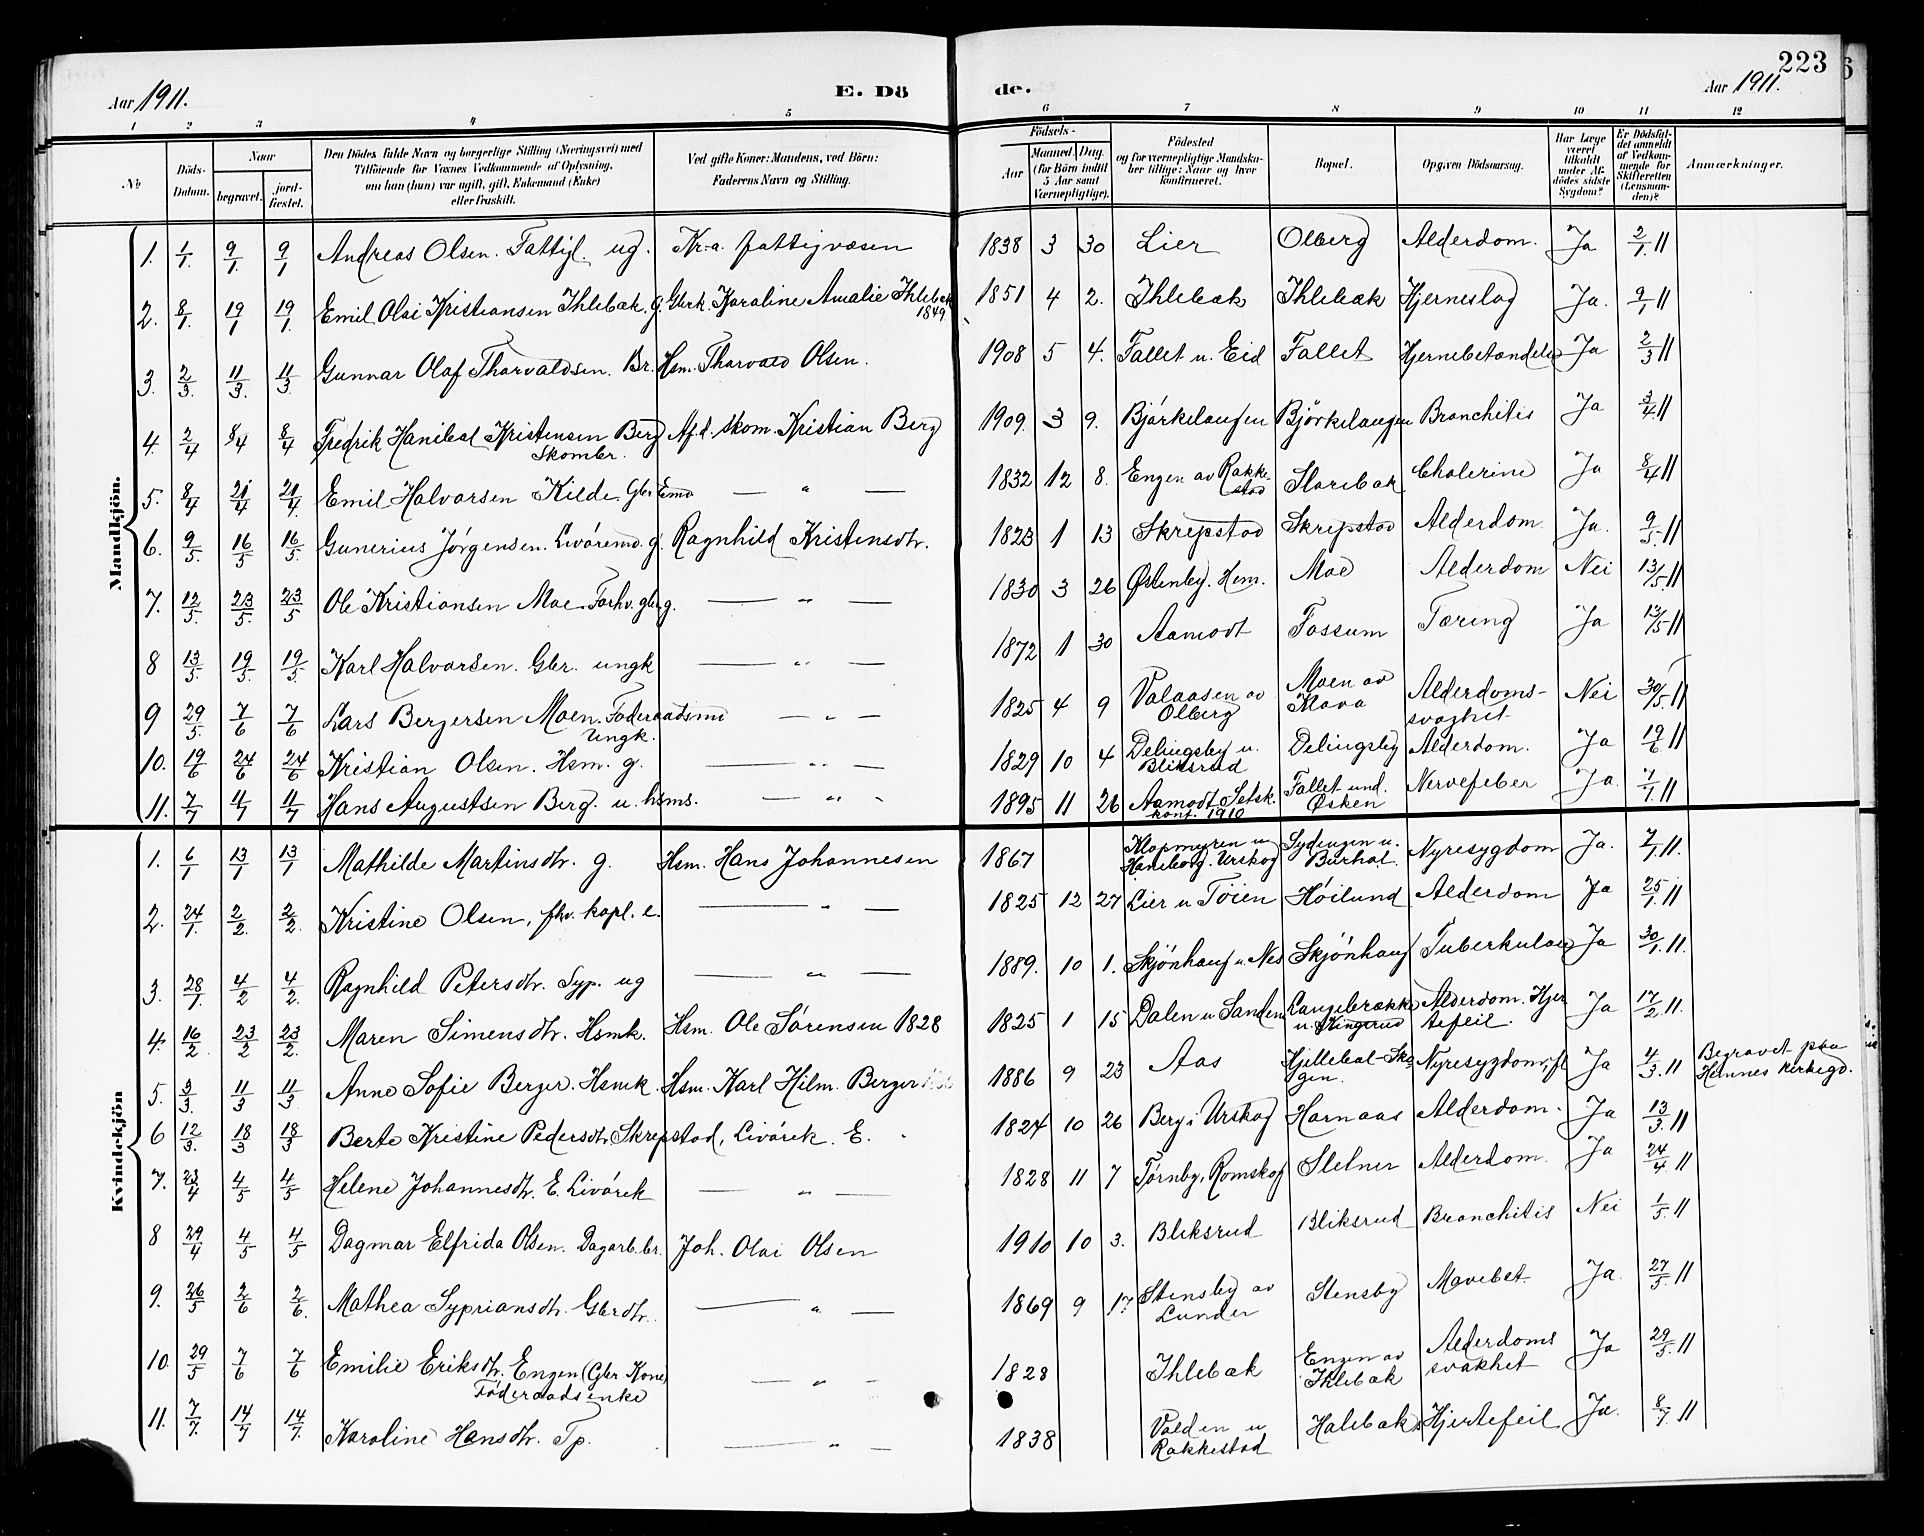 223
Aar 1911.
E. Dö
de.
Aar 1911.
1 2 3 4 5 6 7 8 9 10 11 12
№
Döds-Datum.
Naar
begravet.
jord-fæstet.
Den Dödes fulde Navn og borgerlige Stilling (Næringsvei) med
Tilföiende for Voxnes Vedkommende af Oplysning,
om han (hun) var ugift, gift, Enkemand (Enke)
eller fraskilt.
Ved gifte Koner: Mandens, ved Börn:
Faderens Navn og Stilling.
Födsels-
Aar
Maaned. Dag.
(for Börn indtil
5 Aar samt
Værnepligtige).
Födested
og for værnepligtige Mandska-
ber tillige: Naar og hvor
konfirmeret.
Bopæl.
Opgiven Dödsaarsag.
Har Læge
været
tilkaldt
under Af-
dödes sidste
Sygdom?
Er Dödsfal-
det anmeldt
af Vedkom-
mende for
Skifteretten
(Lensman-
den)?
Anmærkninger.
Mandkjön.
1. 1/1. 9/1. 9/1 Andreas Olsen. Fattigl. ug. Kr.a. fattigvæsen 1838 3 30 Lier Olberg Alderdom. Ja 2/1 11
2. 8/1. 19/1 19/1. Emil Olai Kristiansen Ihlebæk. g. Gbrk. Karoline Amalie Ihlebæk 1849 1851 4 2. Ihlebæk Ihlebæk Hjerneslag Ja. 9/1 11
3. 2/3. 11/3. 11/3 Gunnar Olaf Thorvaldsen. Br. Hsm. Thorvald Olsen. 1908 5 4. Fallet u. Eid Fallet Hjernebetændelse Ja 2/3 11
4. 2/4 8/4 8/4 Fredrik Hanibal Kristensen Berg Skombr. Afd. skom. Kristian Berg 1909. 3 9. Björkelangen Björkelangen Bronchitis Ja 3/4. 11
5. 8/4 21/4 21/4. Emil Halvorsen Kilde Gbr Emd — " — 1832 12 8. Engen av Rakkestad Starebæk Cholerine Ja 8/4 11
6. 9/5. 16/5 16/5. Gunerius Jörgensen. Livöremd. g. Ragnhild Kristensdtr. 1823 1 13 Skrepstad Skrepstad Alderdom. Ja. 9/5. 11
7. 12/5 23/5. 23/5 Ole Kristiansen Moe. Forhv. gbr g. — " — 1830 3 26 Østenby. Hem. Moe Alderdom Nei 13/5. 11
8 13/5. 19/5. 19/5. Karl Halvorsen. Gbr. ungk — " — 1872 1 30 Aamodt Fossum Tæring Ja 13/5 11
9 29/5. 7/6 7/6 Lars Bergersen Moen. Föderaadsmd Ungk. — " — 1825 4 9 Valaasen av Olberg Moen av Krava Alderdoms-svaghet Nei 30/5. 11
10. 19/6 24/6 24/6 Kristian Olsen. Hsm. g. — " — 1829 10 4 Delingsby u. Bliksrud Delingsby Alderdom. Ja 19/6 11
11. 7/7 11/7 11/7 Hans Augustsen Berg. u. hsms. — " — 1895 11 26 Aamodt Setsk. konf. 1910 Fallet und. Østen Nervefeber Ja. 7/7. 11
Kvindekjön
1. 6/1 13/1 13/1 Mathilde Martinsdtr. g. Hsm. Hans Johannesen 1867 Haneborg. Urskog Nyresygdom Ja. 7/1. 11.
2. 24/1. 2/2. 2/2. Kristine Olsen, fhv. kapl. e. — " — 1825 12 27 Lier u Töien Höilund Alderdom Ja 25/1. 11
3. 28/1. 4/2 4/2. Ragnhild Petersdtr. Syp. ug — " — 1889. 10 1. Skjönhaug u. Nes Skjönhaug Tuberkulose Ja 30/1. 11.
4. 16/2 23/2 23/2. Maren Simensdtr. Hsmk. Hsm. Ole Sörensen 1828 1825 1 15 Dalen u Sanden Langebrække u. Kingerud Alderdom. Hjertefeil. Ja 17/2 11.
5. 3/3. 11/3 11/3 Anne Sofie Berger. Hsmk. Hsm. Karl Hilm. Berger 1886 9 23 Aas Hjellebøl-Skogen. Nyresygdom Ja 4/3. 11 Begravet paa Hennes kirkegd.
6 12/3. 18/3 18/3 Berte Kristine Pedersdtr. Skrepstad, Livörek. E. 1824 10 26 Berg i Urskog Harnaas Alderdom. Ja 13/3. 11
7. 23/4 4/5 4/5 Helene Johannesdtr. E. Livörek — " — 1828 11 7 Törnby i Romskog Stelner Alderdom. Ja 24/4. 11
8 29/4 4/5 4/5 Dagmar Elfrida Olsen. Dagarb. br. Joh. Olai Olsen 1910 10 3. Bliksrud Bliksrud Bronchitis Nei 1/5. 11
9. 26/5 2/6 2/6. Mathea Sypriansdtr. Gbrdtr. — " — 1869 9 17 Stensby av Lunder Stensby Mavebet. Ja. 27/5. 11
10. 29/5 7/6 7/6 Emilie Eriksdtr. Engen (Gbr Kone) Föderaadsenke — " — 1828 Ihlebæk Engen av Ihlebæk Alderdoms svakhet Ja 29/5. 11
11. 7/7. 14/7 14/7. Karoline Hansdtr. Tp. — " — 1838 Valden u Rakkestad Halebæk Hjertefeil Ja. 8/7. 11